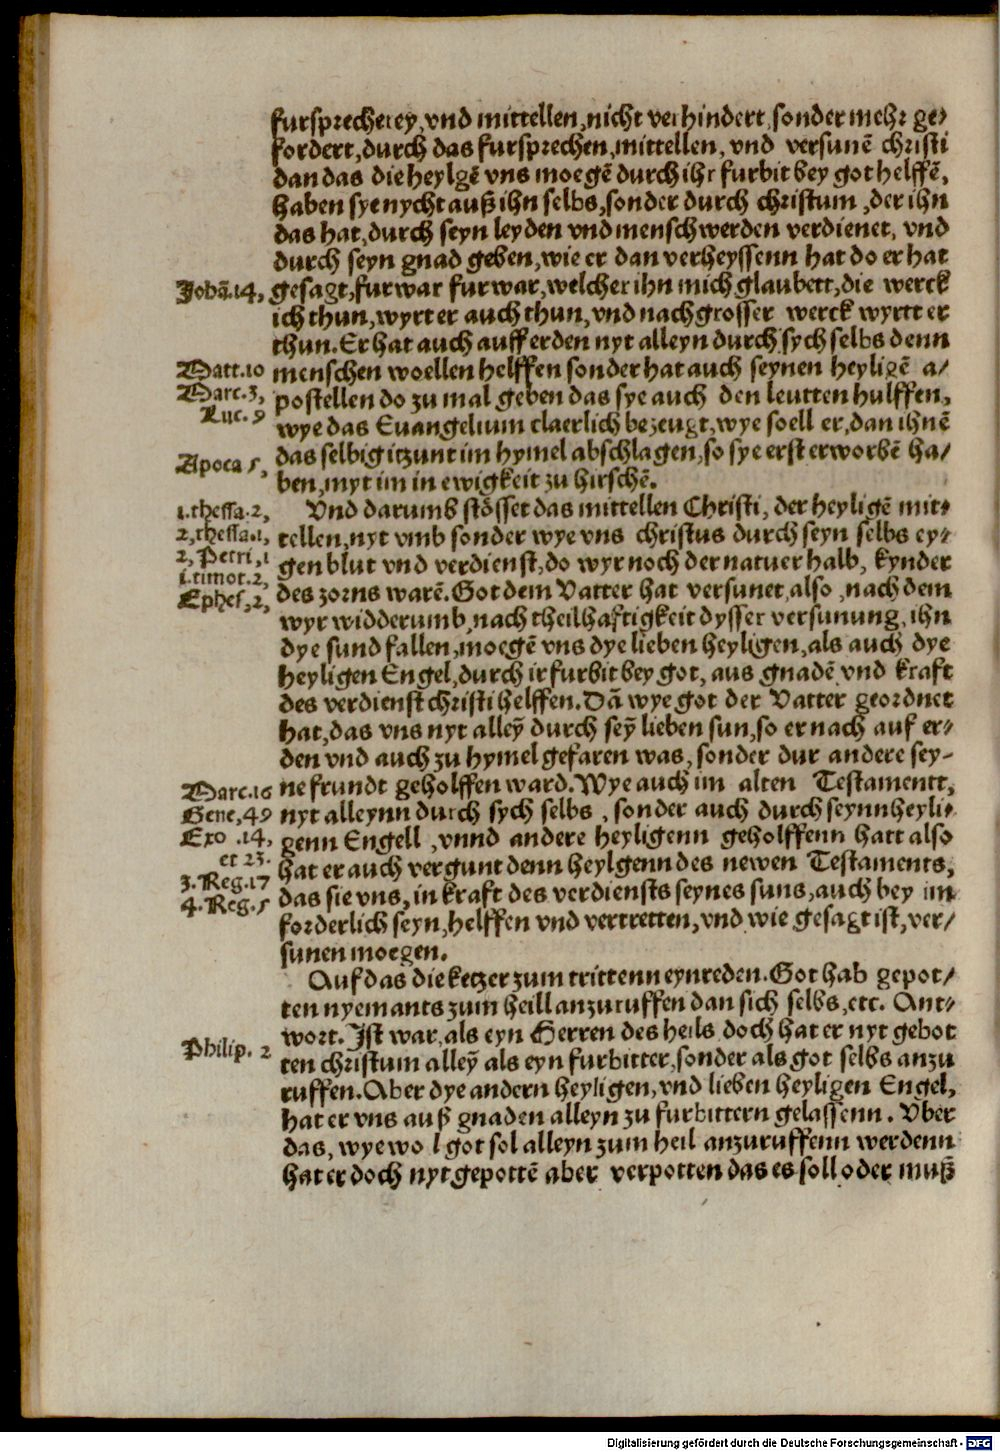 furspzecherey, vnd mittellen, nicht verhindert, sonder mehr ge⸗
fordert, durch das fursprechen, mittellen, vnd versunē christi
dan das die heylgē vns moegē durch ihr furbit bey got helffē,
haben sye nycht auß ihn selbs, sonder durch christum, der ihn
das hat, durch seyn leyden vnd menschwerden verdienet, vnd
durch seyn gnad geben, wie er dan verheyssenn hat do er hat
Johā.14, gesagt, furwar furwar, welcher ihn mich glaubett, die werck
ich thun, wyrt er auch thun, vnd nach grosser werck wyrtt er
thun. Er hat auch auff erden nyt alleyn durch sych selbs denn
Matt.10 menschen woellen helffen sonder hat auch seynen heyligē a⸗
Marc.3, postellen do zu mal geben das sye auch den leutten hulffen,
Luc. 9 wye das Euangelium claerlich bezeugt, wye soell er, dan ihnē
Apoca 5, das selbig itzunt im hymel abschlagen, so sye erst erworbē ha⸗
ben, myt im in ewigkeit zu hirschē.
1.thessa.2, Vnd darumb stösset das mittellen Christi, der heyligē mit⸗
2,thessa.1, tellen, nyt vmb sonder wye vns christus durch seyn selbs ey⸗
2, Petri, 1 gen blut vnd verdienst, do wyr noch der natuer halb, kynder
1.timot.2, des zorns warē. Got dem Vatter hat versunet, also, nach dem
Ephes, 2, wyr widderumb, nach theilhaftigkeit dysser versunung, ihn
dye sund fallen, moegē vns dye lieben heyligen, als auch dye
heyligen Engel, durch ir furbit bey got, aus gnadē vnd kraft
des verdienst christi helffen. Dā wye got der Vatter geordnet
hat, das vns nyt alleȳ durch seȳ lieben sun, so er nach auf er⸗
den vnd auch zu hymel gefaren was, sonder dur andere sey-
Marc.16 ne frundt geholffen ward. Wye auch im alten Testamentt,
Gene, 49 nyt alleynn durch sych selbs, sonder auch durch seynn heyli⸗
Exo .14, genn Engell, vnnd andere heyligenn geholffenn hatt also
et 23. hat er auch vergunt denn heylgenn des newen Testaments,
3. Reg. 17 das sie vns, in kraft des verdiensts seynes suns, auch bey im
4. Reg. 5 forderlich seyn, helffen vnd vertretten, vnd wie gesagt ist, ver⸗
sunen moegen.
Auf das die ketzer zum trittenn eynreden. Got hab gepot⸗
ten nyemants zum heill anzuruffen dan sich selbs, etc. Ant⸗
wort. Ist war, als eyn Herren des heils doch hat er nyt gebot
Philip. 2 ten christum alleȳ als eyn furbitter, sonder als got selbs anzu
ruffen. Aber dye andern heyligen, vnd lieben heyligen Engel,
hat er vns auß gnaden alleyn zu furbittern gelassenn. Vber
das, wye wol got sol alleyn zum heil anzuruffenn werdenn
hat er doch nyt gepottē aber verpotten das es soll oder muß
Digitalisierung gefördert durch die Deutsche Forschungsgemeinschaft - DFG